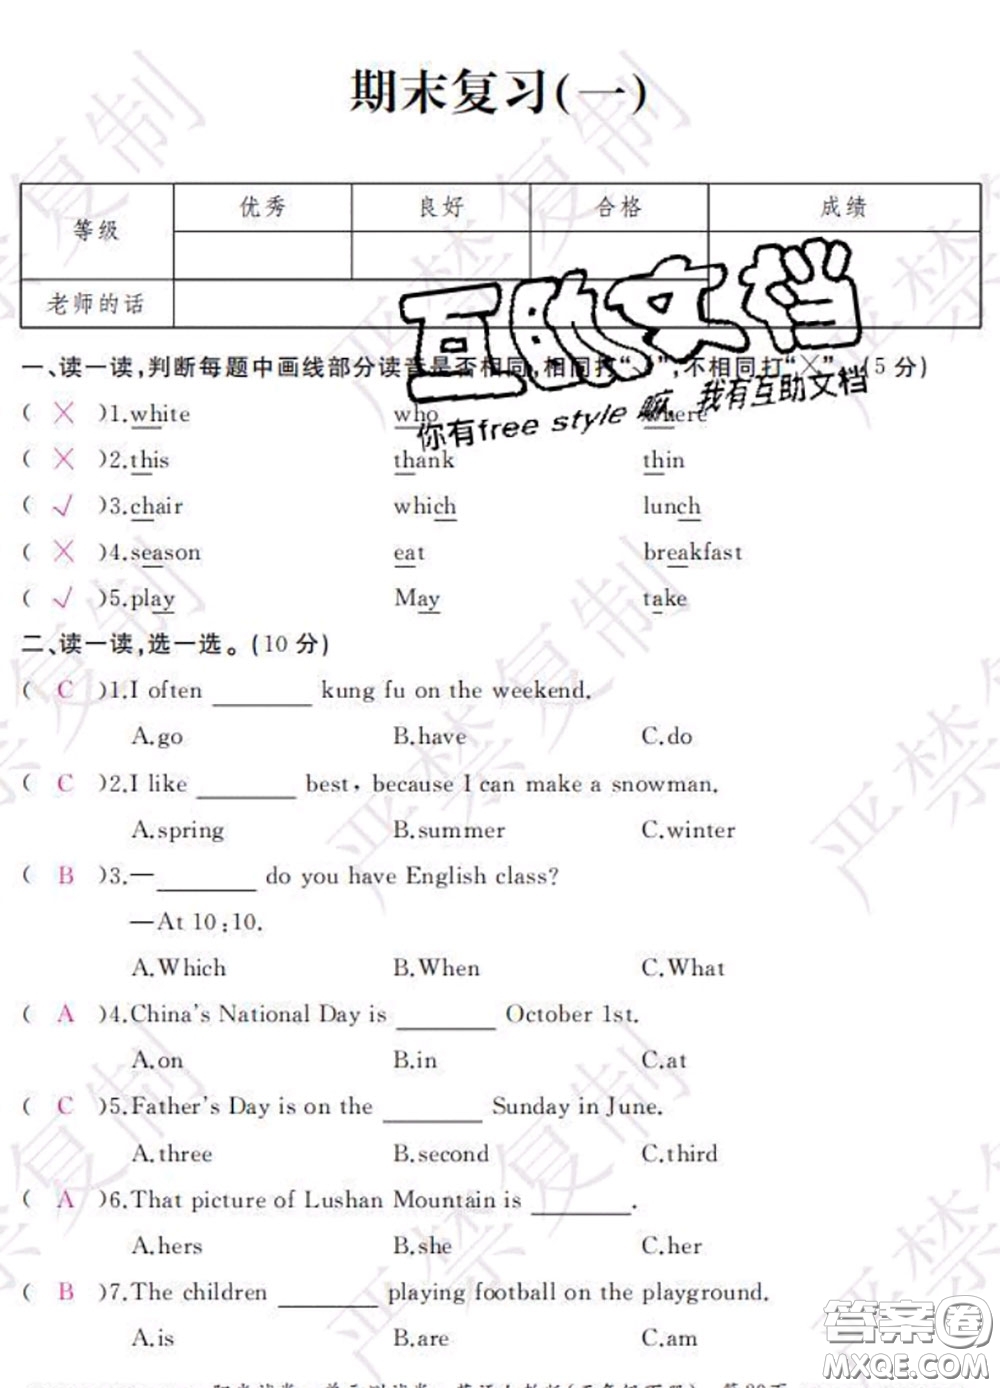 期末复习(一)
等级 优秀 良好 合格 成绩
老师的话
互助文档
你有free style 嘛, 我有互助文档
一、读一读,判断每题中画线部分读音是否相同,相同打“√”,不相同打“×”。(5分)
( × )1.white who where
( × )2.this thank thin
( √ )3.chair which lunch
( × )4.season eat breakfast
( √ )5.play May take
二、读一读,选一选。(10分)
( C )1.I often ________ kung fu on the weekend.
A.go B.have C.do
( C )2.I like ________ best, because I can make a snowman.
A.spring B.summer C.winter
( B )3.—________ do you have English class?
—At 10:10.
A.Which B.When C.What
( A )4.China's National Day is ________ October 1st.
A.on B.in C.at
( C )5.Father's Day is on the ________ Sunday in June.
A.three B.second C.third
( A )6.That picture of Lushan Mountain is ________.
A.hers B.she C.her
( B )7.The children ________ playing football on the playground.
A.is B.are C.am
严禁复制
答案圈
MXQE.COM